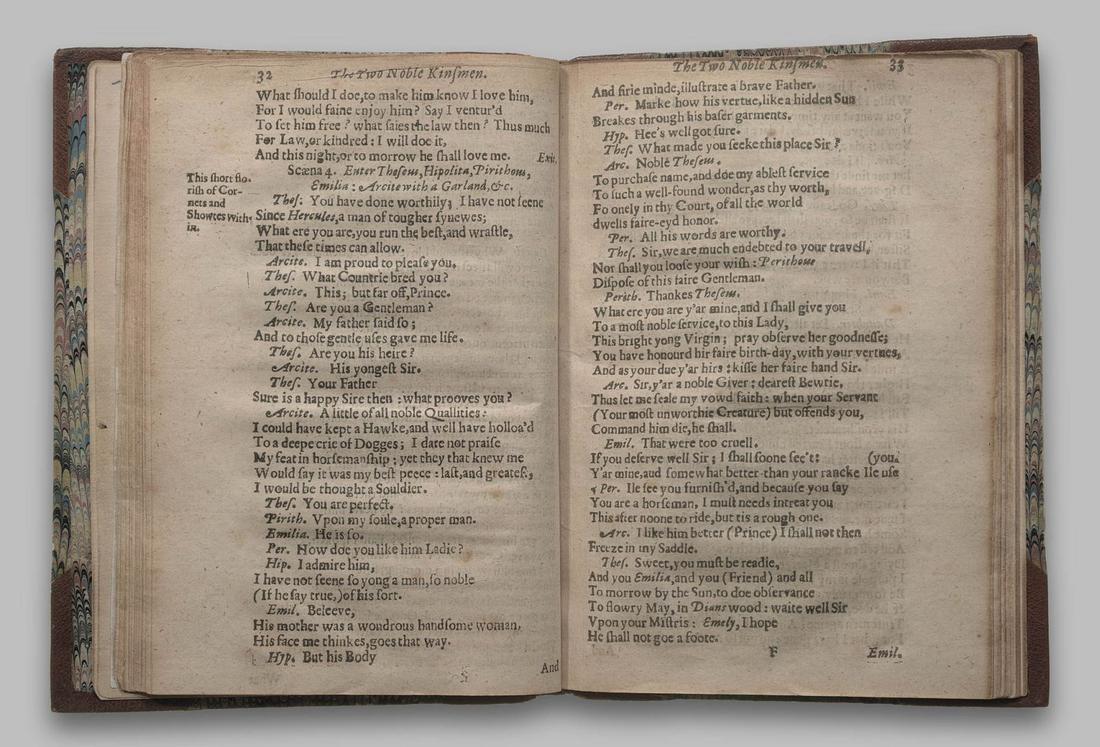 32 The Two Noble Kinſmen.
What ſhould I doe,to make him know I love him,
For I would faine enjoy him? Say I ventur'd
To ſet him free? what ſaies the law then? Thus much
For Law,or kindred: I will doe it,
And this night,or to morrow he ſhall love me. Exit.
Scæna 4. Enter Theſeus, Hipolita, Pirithous,
Emilia: Arcite with a Garland,&c.
This ſhort flo-
riſh of Cor-
nets and
Showtes with-
in.
Theſ. You have done worthily; I have not ſeene
Since Hercules,a man of tougher ſynewes;
What ere you are,you run the beſt,and wraſtle,
That theſe times can allow.
Arcite. I am proud to pleaſe you.
Theſ. What Countrie bred you?
Arcite. This; but far off,Prince.
Theſ. Are you a Gentleman?
Arcite. My father ſaid ſo;
And to thoſe gentle uſes gave me life.
Theſ. Are you his heire?
Arcite. His yongeſt Sir.
Theſ. Your Father
Sure is a happy Sire then: what prooves you?
Arcite. A little of all noble Quallities:
I could have kept a Hawke,and well have holloa'd
To a deepe crie of Dogges; I dare not praiſe
My feat in horſemanſhip; yet they that knew me
Would ſay it was my beſt peece: laſt,and greateſt,
I would be thought a Souldier.
Theſ. You are perfect.
Pirith. Vpon my ſoule,a proper man.
Emilia. He is ſo.
Per. How doe you like him Ladie?
Hip. I admire him,
I have not ſeene ſo yong a man,ſo noble
(If he ſay true,)of his ſort.
Emil. Beleeve,
His mother was a wondrous handſome woman,
His face me thinkes,goes that way.
Hyp. But his Body
And
The Two Noble Kinſmen. 33
And firie minde,illuſtrate a brave Father.
Per. Marke how his vertue,like a hidden Sun
Breakes through his baſer garments.
Hyp. Hee's well got ſure.
Theſ. What made you ſeeke this place Sir?
Arc. Noble Theſeus.
To purchaſe name,and doe my ableſt ſervice
To ſuch a well-found wonder,as thy worth,
Fo onely in thy Court, of all the world
dwells faire-eyd honor.
Per. All his words are worthy.
Theſ. Sir,we are much endebted to your travell,
Nor ſhall you looſe your wiſh: Perithous
Diſpoſe of this faire Gentleman.
Perith. Thankes Theſeus.
What ere you are y'ar mine,and I ſhall give you
To a moſt noble ſervice,to this Lady,
This bright yong Virgin; pray obſerve her goodneſſe;
You have honourd hir faire birth-day,with your vertues,
And as your due y'ar hirs: kiſſe her faire hand Sir.
Arc. Sir,y'ar a noble Giver: deareſt Bewtie,
Thus let me ſeale my vowd faith: when your Servant
(Your moſt unworthie Creature) but offends you,
Command him die,he ſhall.
Emil. That were too cruell.
If you deſerve well Sir; I ſhall ſoone ſee't: (you.
Y'ar mine,and ſomewhat better than your rancke Ile uſe
Per. Ile ſee you furniſh'd,and becauſe you ſay
You are a horſeman, I muſt needs intreat you
This after noone to ride,but tis a rough one.
Arc. I like him better (Prince) I ſhall not then
Freeze in my Saddle.
Theſ. Sweet,you muſt be readie,
And you Emilia,and you (Friend) and all
To morrow by the Sun,to doe obſervance
To flowry May, in Dians wood: waite well Sir
Vpon your Miſtris: Emely, I hope
He ſhall not goe a foote.
F Emil.